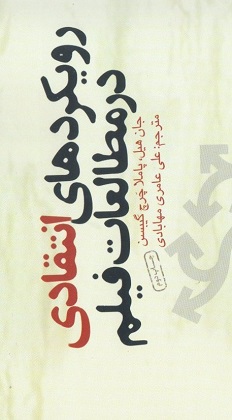 رویکردهای انتقادی
در مطالعات فیلم
جان هیل، پاملا چرچ گیبسن
مترجم: علی عامری مهابادی
چاپ دوم